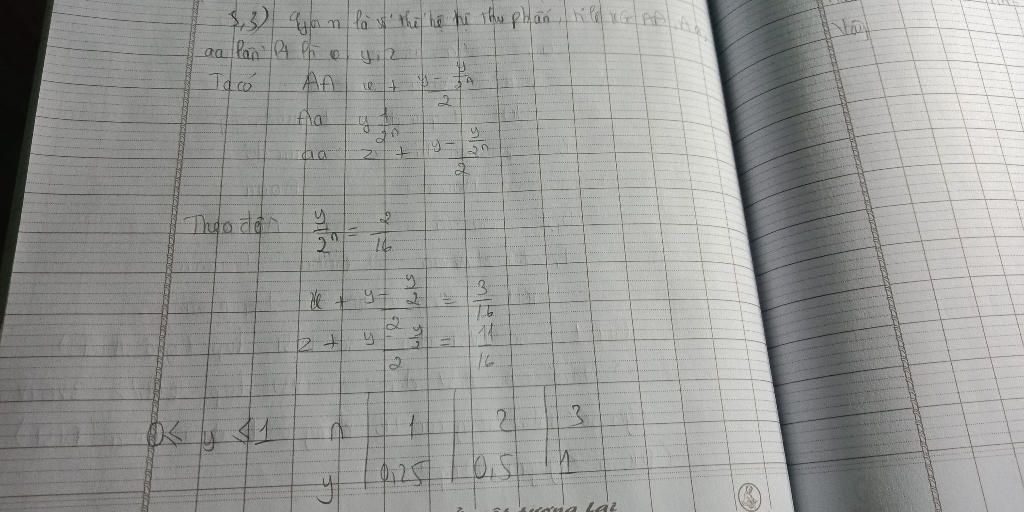 3,3) Gọi n là số thế hệ tự thụ phấn, tỉ lệ KG AA, Aa,
aa lần P là x, y, z
Ta có AA x + \frac{y - \frac{y}{2^n}}{2}
Aa y \frac{1}{2^n}
aa z + \frac{y - \frac{y}{2^n}}{2}
Theo đề \frac{y}{2^n} = \frac{2}{16}
x + \frac{y - \frac{y}{2}}{2} = \frac{3}{16}
z + \frac{y - \frac{y}{2}}{2} = \frac{11}{16}
0 < y ≤ 1 n 1 2 3
y 0,25 0,5 1
tương lai
Vậy